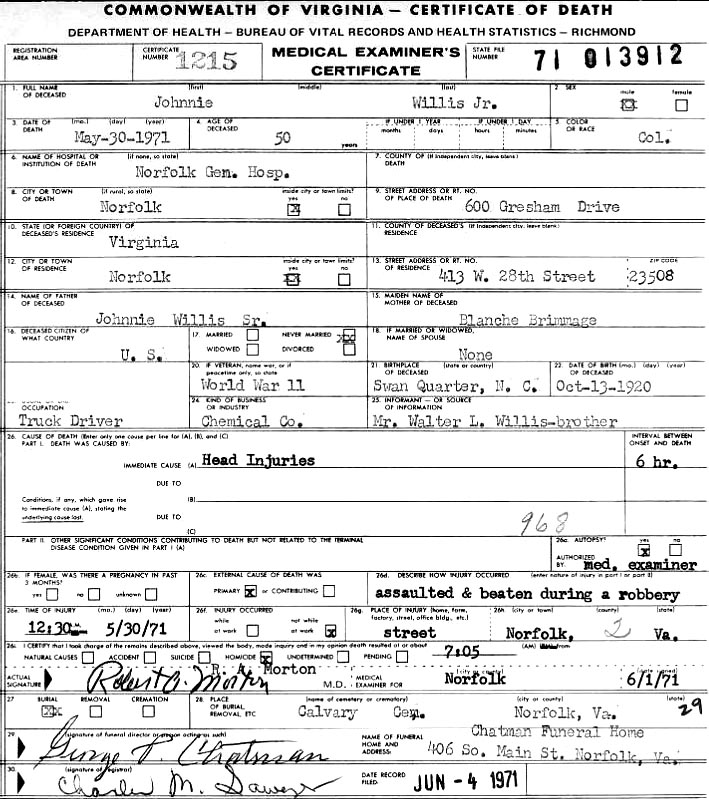 COMMONWEALTH OF VIRGINIA – CERTIFICATE OF DEATH
DEPARTMENT OF HEALTH – BUREAU OF VITAL RECORDS AND HEALTH STATISTICS – RICHMOND
REGISTRATION AREA NUMBER CERTIFICATE NUMBER 1215 MEDICAL EXAMINER'S CERTIFICATE STATE FILE NUMBER 71 013912
1. FULL NAME OF DECEASED (first) (middle) (last) 2. SEX male female
Johnnie Willis Jr. X
3. DATE OF DEATH (mo.) (day) (year) 4. AGE OF DECEASED IF UNDER 1 YEAR IF UNDER 1 DAY 5. COLOR OR RACE
months days hours minutes
May-30-1971 50 years Col.
6. NAME OF HOSPITAL OR INSTITUTION OF DEATH (if none, so state) 7. COUNTY OF DEATH (if independent city, leave blank)
Norfolk Gen. Hosp.
8. CITY OR TOWN OF DEATH (if rural, so state) inside city or town limits? yes no 9. STREET ADDRESS OR RT. NO. OF PLACE OF DEATH
Norfolk X 600 Gresham Drive
10. STATE (OR FOREIGN COUNTRY) OF DECEASED'S RESIDENCE 11. COUNTY OF DECEASED'S RESIDENCE (if independent city, leave blank)
Virginia
12. CITY OR TOWN OF RESIDENCE inside city or town limits? yes no 13. STREET ADDRESS OR RT. NO. OF RESIDENCE ZIP CODE
Norfolk X 413 W. 28th Street 23508
14. NAME OF FATHER OF DECEASED 15. MAIDEN NAME OF MOTHER OF DECEASED
Johnnie Willis Sr. Blanche Brimmage
16. DECEASED CITIZEN OF WHAT COUNTRY 17. MARRIED NEVER MARRIED XXX 18. IF MARRIED OR WIDOWED, NAME OF SPOUSE
U. S. WIDOWED DIVORCED None
20. IF VETERAN, name war, or if peacetime only, so state 21. BIRTHPLACE OF DECEASED (state or country) 22. DATE OF BIRTH (mo.) (day) (year) OF DECEASED
World War 11 Swan Quarter, N. C. Oct-13-1920
OCCUPATION 24. KIND OF BUSINESS OR INDUSTRY 25. INFORMANT – OR SOURCE OF INFORMATION
Truck Driver Chemical Co. Mr. Walter L. Willis-brother
26. CAUSE OF DEATH (Enter only one cause per line for (A), (B), and (C)) INTERVAL BETWEEN ONSET AND DEATH
PART I. DEATH WAS CAUSED BY:
IMMEDIATE CAUSE (A) Head Injuries 6 hr.
DUE TO
Conditions, if any, which gave rise to immediate cause (A), stating the underlying cause last. (B)
DUE TO
(C) 968
PART II. OTHER SIGNIFICANT CONDITIONS CONTRIBUTING TO DEATH BUT NOT RELATED TO THE TERMINAL DISEASE CONDITION GIVEN IN PART I (A) 26a. AUTOPSY? yes no X
AUTHORIZED BY: med. examiner
26b. IF FEMALE, WAS THERE A PREGNANCY IN PAST 3 MONTHS? 26c. EXTERNAL CAUSE OF DEATH WAS 26d. DESCRIBE HOW INJURY OCCURRED (enter nature of injury in part I or part II)
yes no unknown PRIMARY X or CONTRIBUTING assaulted & beaten during a robbery
26e. TIME OF INJURY (mo.) (day) (year) 26f. INJURY OCCURRED 26g. PLACE OF INJURY (home, farm, factory, street, office bldg., etc.) 26h. (city or town) (county) (state)
12:30 5/30/71 while at work not while at work X street Norfolk, 2 Va.
26i. I CERTIFY that I took charge of the remains described above, viewed the body, made inquiry and in my opinion death resulted at or about 7:05 (AM) from
NATURAL CAUSES ACCIDENT SUICIDE HOMICIDE X UNDETERMINED PENDING
R. A. Morton
ACTUAL SIGNATURE Robert A. Morton M.D. MEDICAL EXAMINER FOR (city or county) Norfolk 6/1/71
27 BURIAL XX REMOVAL CREMATION 28. PLACE OF BURIAL, REMOVAL, ETC (name of cemetery or crematory) (city or county) (state)
Calvary Cem. Norfolk, Va. 29
29 (signature of funeral director or person acting as such) NAME OF FUNERAL HOME AND ADDRESS: Chatman Funeral Home
George P. Chatman 406 So. Main St. Norfolk, Va.
30 (signature of registrar) DATE RECORD FILED: JUN - 4 1971
Charles M. Sawyer